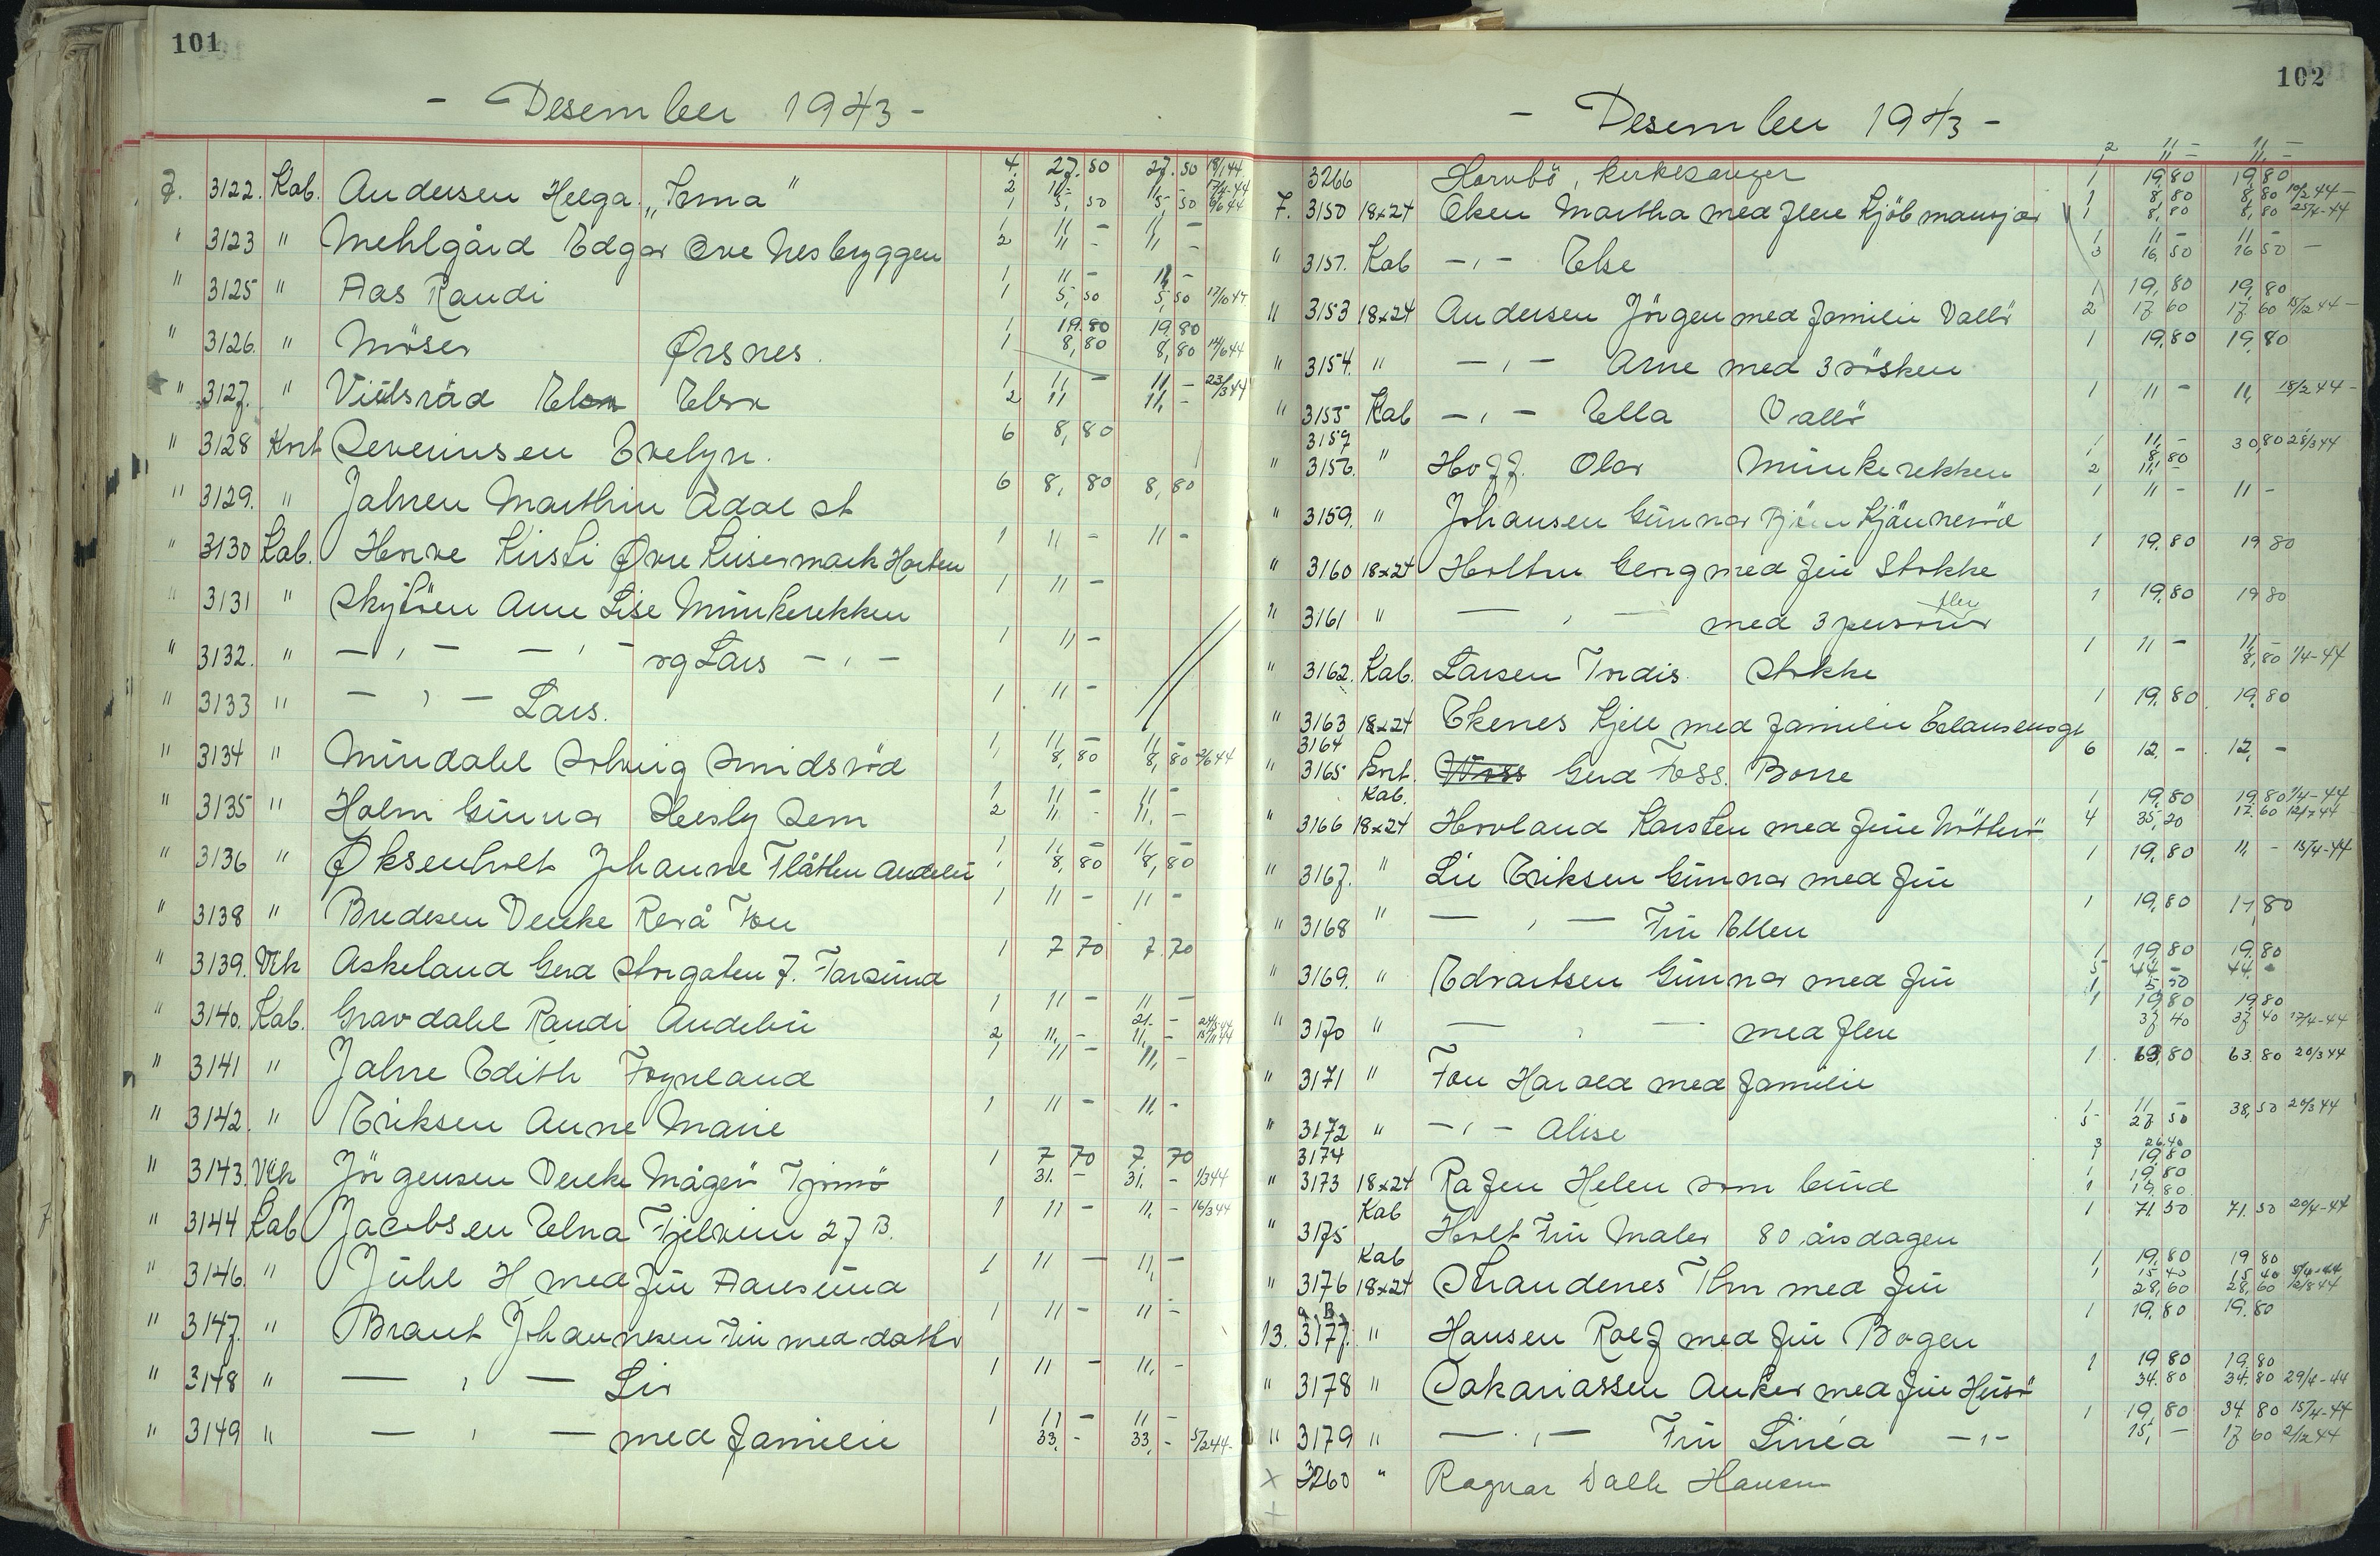 101
- Desember 1943 -
7. 3122. Kab. Andersen Helga "Irma" 4. 27.50 27.50 18/1 44
2 11,- 11,- 17/4-44
1 5,50 5,50 9/6 44
" 3123 " Mehlgård Edgar Ove Nesbryggen 1 11 - 11 -
2 11 - 11, -
" 3125 " Aas Randi 1 11 - 11, -
1 5,50 5,50 17/10 44
" 3126. " Möser Ørsnes. 1 19.80 19.80
1 8,80 8,80 14/6 44
" 3127. " Elsa 1 11, - 11, - 23/3 44
2 11 11, -
" 3128 Kort Severinsen Evelyn. 6 8,80
" 3129. " Jahren Marthin Adal st 6 8,80 8,80
" 3130 Kab. Kirsti Øvre Keisermark Horten 1 11 - 11 -
" 3131 " Skytöen Anne Lise Munkerekken 1 11 -
" 3132. " - " - - " - og Lars - " - 1 11 -
" 3133 " - " - Lars. 1 11 -
" 3134 " Mindahl Solveig Smidsröd 1, 11, - 11, -
8,80 8,80 2/6 44
" 3135 " Holm Gunnar Hesby Sem 1 11 - 11 -
2 11 - 11, -
" 3136 " Øksenholt Johanne Flåtten Andebu 1 11, - 11, -
1 8,80 8,80
" 3138 " Bredesen Venke Reså Tön 1 11 - 11 -
" 3139. Vik Askeland Gerd Storgaten 7. Farsund 1 7 70 7.70
" 3140. Kab. Gravdahl Randi Andebu 1 11 - 11 -
21. -
2 11, - 11, - 15/11 44
" 3141 " Jahre Edith Fogneland 1 11 - 11, -
" 3142. " Eriksen Anne Marie 1 11 - 11, -
" 3143. Vik Jörgensen Venke Mågerö Tjömö 1 7 70 7,70
31. - 31, - 1/3 44
" 3144 Kab Jacobsen Elna Fjelveien 27 B. 1 11 - 11, - 16/3 44
" 3146. " Juhl H. med fru Aaresund 1 11 - 11, -
" 3147. " Braut Johannesen Fru med datter 1 11 - 11 -
" 3148 " - " - Liv 1 11 - 11, -
" 3149 " - " - med familie 1 11 - 11 -
33, - 33, - 5/2 44-
102
- Desember 1943 -
2 11 - 11, -
3266 Hornbö, kirkesanger 1 11 - 11, -
7. 3150 18x24 Oken Martha med flere Kjöbmannsjor 1 19,80 19,80
1 8,80 8,80 10/2 44 -
1 8,80 8,80 25/4-44
" 3151. Kab - " - Else 1 11 - 11 -
3 16,50 16 50 -
" 3153 18x24 Andersen Jörgen med familie Vallö 1 19,80 19,80
2 17 60 17, 60 15/12 44 -
" 3154. " - " - Arne med 3 sösken 1 19,80 19,80
" 3155 Kab - " - Ella Vallö 1 11 - 11, 18/2 44 -
3157
" 3156. " Hoff. Olar Munkerekken 1 11, - 30,80 28/3 44
8,80
2 11 -
" 3159. " Johansen Gunnar Kjönneröd 1 11 - 11 -
" 3160 18x24 Holtan Georg med fru Stokke 1 19,80 19 80
" 3161 " - " - med 3 personer flere 1 19,80 19 80
" 3162. Kab. Larsen Tordis. Stokke 1 11 - 11, -
8,80 1/4-44
" 3163 18x24 Ekenes Kjell med familie 1 19,80 19,80
3164
" 3165 Kort. Gerd Foss. Borre 6 12 - 12, -
Kab.
" 3166 18x24 Hovland Karsten med frue Nötterö 1 19,80 19,80 1/4-44
4 35,20 17.60 12/7 44
" 3167. " Lie Eriksen Gunnar med fru 1 19,80 11, - 15/4-44
" 3168 " - " - Fru Ellen 1 19,80 17,80
" 3169. " Edvartsen Gunnar med fru 1 19,80 19.80
5 44, - 44. -
1 5,50
" 3170 " - " - med flere 1 19,80 19,80
37 40 37 40 17/4-44
" 3171 " Fon Harald med familie 1 63,80 63.80 20/3 44
" 3172 " - " - Alise 1 11 - 38,50 20/3 44
5 27 50
3174 3 26.40
" 3173 18x24 Rafen Helen som brud 1 19,80
1 19,80
1 19,80
Kab
" 3175 Holt Fru Maler 80 årsdagen 1 71 50 71,50 20/4-44
Kab
" 3176 18x24 Strandenes Thm med fru 1 19,80 19 80
1 15 40 15 40 5/4-44
28,60 28,60 12/8 44
a. B.
13. 3177. " Hansen Rolf med fru Bogen 1 19,80 19.80
" 3178 " Sakariassen Anker med fru Husö 1 19 80 19.80
34.80 34.80 29/4-44
" 3179 " - " - Fru Linéa - " - 1 19,80 34.80 15/4-44
15, - 17 60 2/12 44
x 3260 " Ragnar Dalh Hansen
+